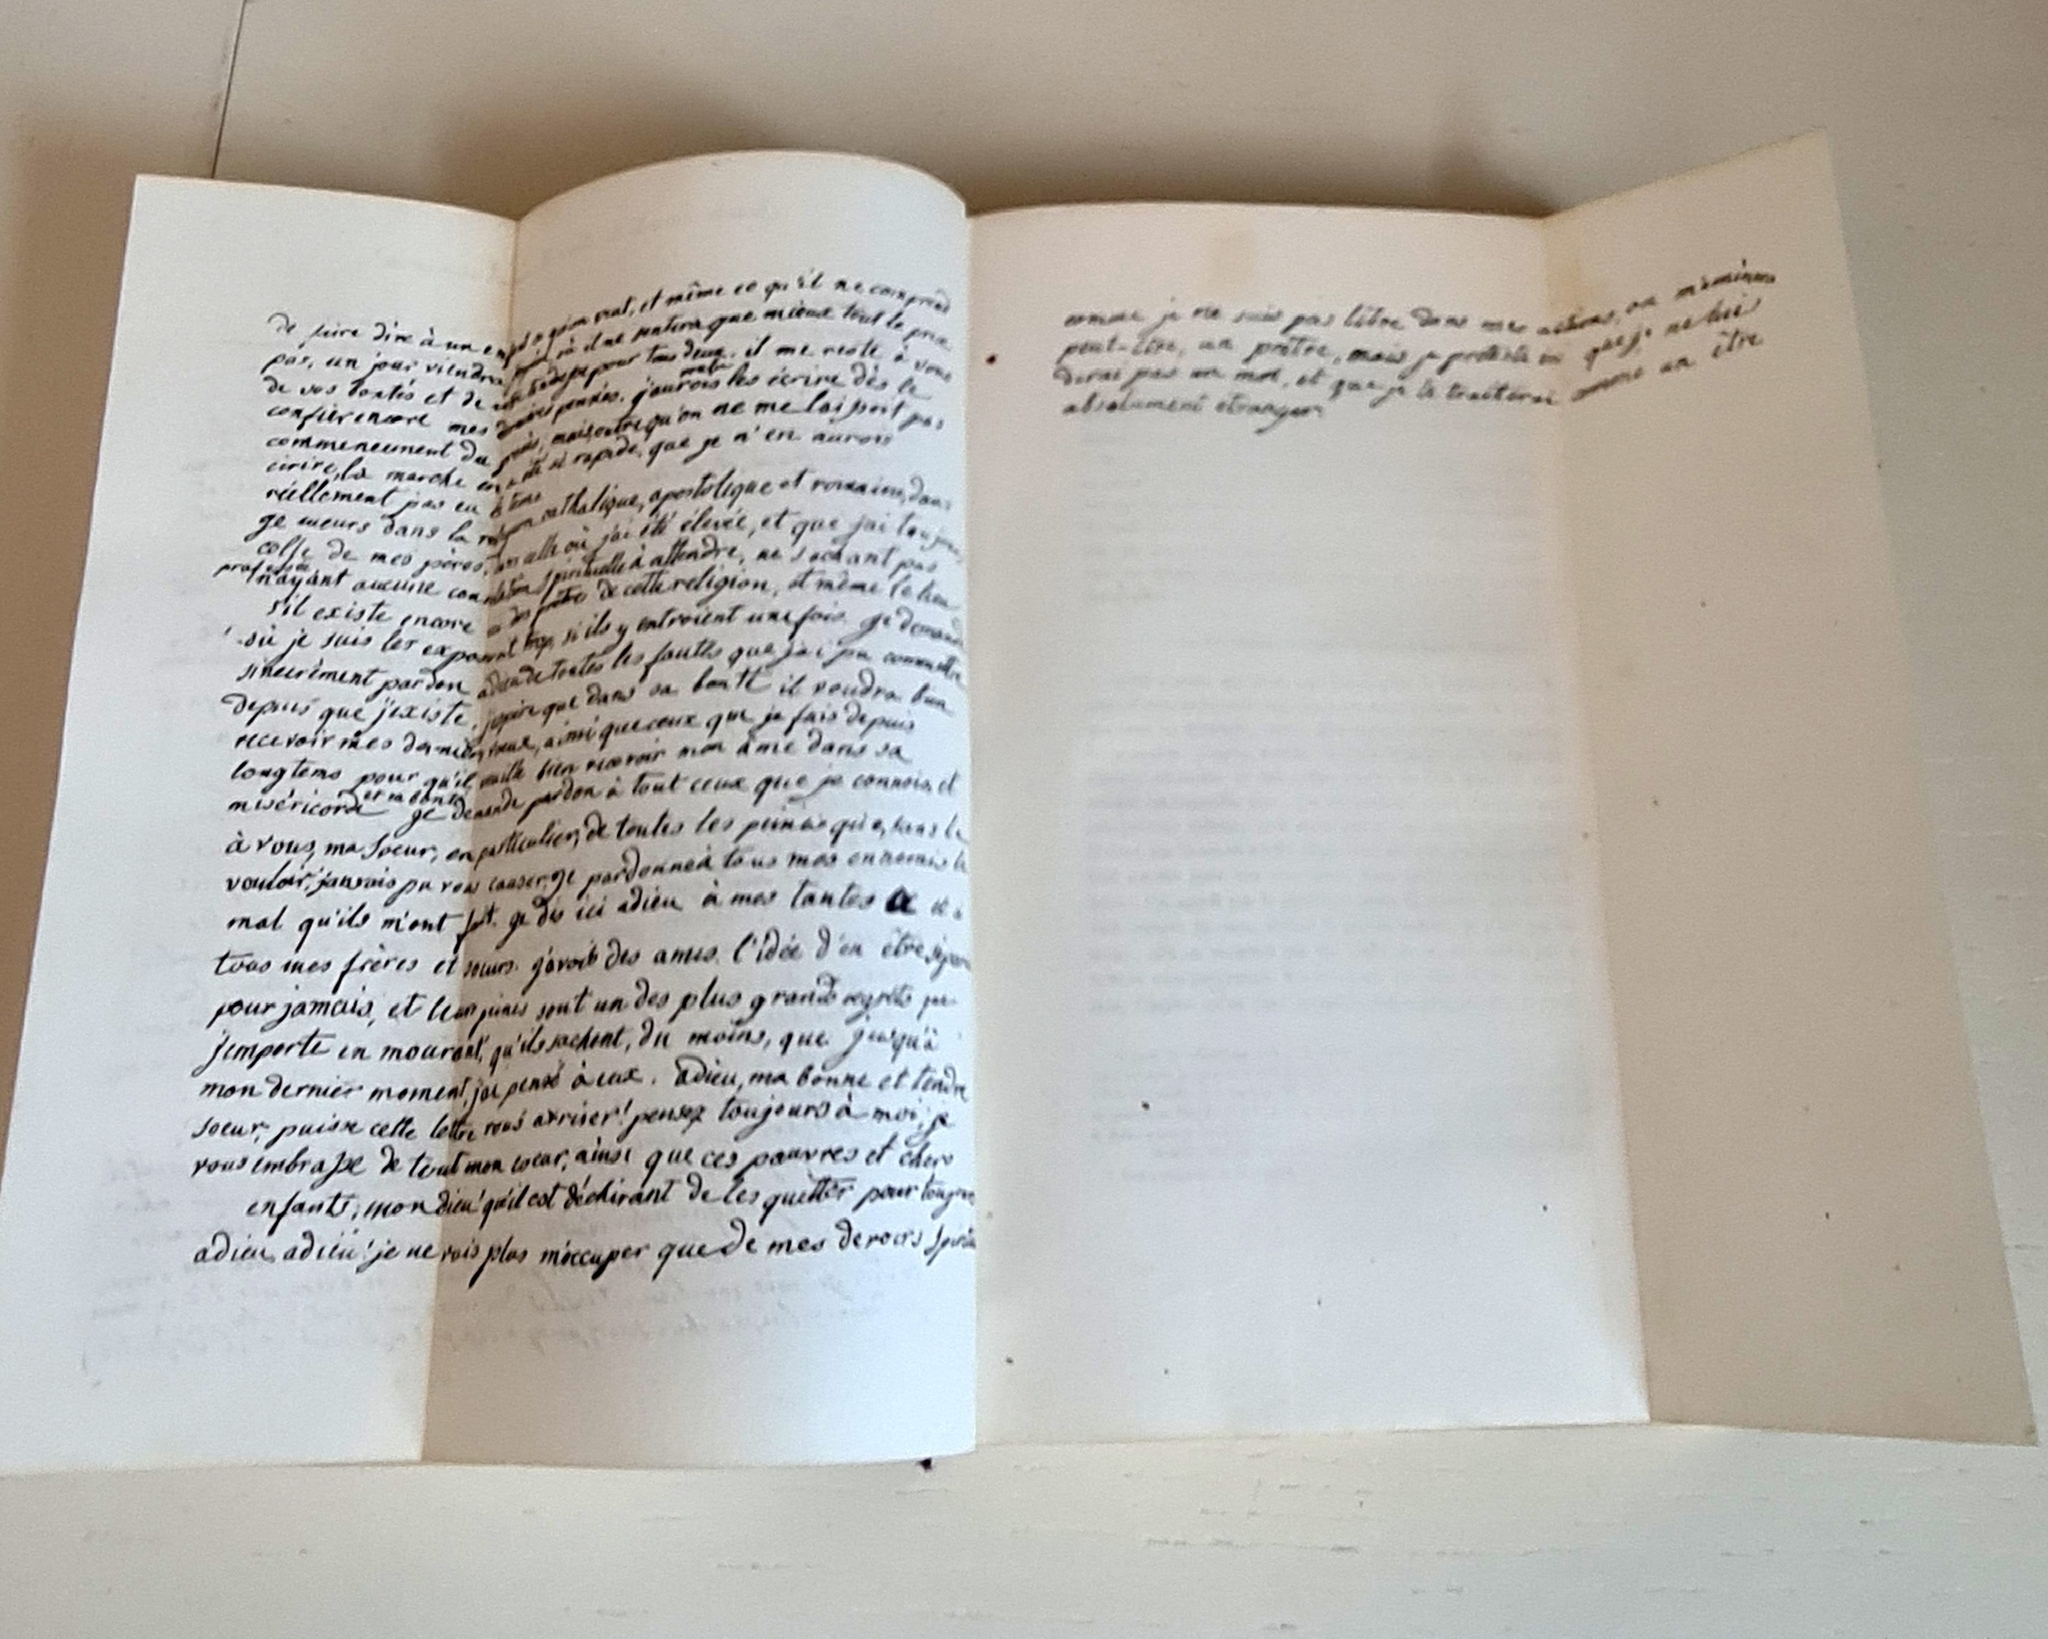 de faire dire à un enfant ce qu'on veut, et même ce qu'il ne comprend
pas, un jour viendra j'espère où il ne sentira que mieux tout le prix
de vos bontés et de votre tendresse pour tous deux. il me reste à vous
confier encore mes dernières pensées. j'aurois voulu les écrire dès le
commencement du procès, mais, outre qu'on ne me laissoit pas
écrire, la marche en a été si rapide, que je n'en aurois
réellement pas eu le tems
je meurs dans la religion catholique, apostolique et romaine, dans
celle de mes pères, dans celle où j'ai été élevée, et que j'ai toujours
professée
n'ayant aucune consolation spirituelle à attendre, ne sachant pas
s'il existe encore ici des prêtres de cette religion, et même le lieu
où je suis les exposeroit trop, si ils y entroient une fois. je demande
sincèrement pardon à dieu de toutes les fautes que j'ai pu commettre
depuis que j'existe. j'espère que dans sa bonté il voudra bien
recevoir mes derniers vœux, ainsi que ceux que je fais depuis
longtems pour qu'il veuille bien recevoir mon âme dans sa
miséricorde et sa bonté. je demande pardon à tout ceux que je connois, et
à vous, ma soeur, en particulier, de toutes les peines que, sans le
vouloir, j'aurois pu vous causer. je pardonne à tous mes ennemis le
mal qu'ils m'ont fait. je dis ici adieu à mes tantes et à
tous mes frères et soeurs. j'avois des amis. l'idée d'en être séparée
pour jamais, et leurs peines sont un des plus grands regrets que
j'emporte en mourant, qu'ils sachent, du moins, que jusqu'à
mon dernier moment, j'ai pensé à eux. adieu, ma bonne et tendre
soeur, puisse cette lettre vous arriver! pensez toujours à moi; je
vous embrasse de tout mon coeur, ainsi que ces pauvres et chers
enfants, mon dieu! qu'il est déchirant de les quitter pour toujours
adieu, adieu! je ne vais plus m'occuper que de mes devoirs spirituels
comme je ne suis pas libre dans mes actions, on m'amènera
peut-être, un prêtre, mais je proteste ici que je ne lui
dirai pas un mot, et que je le traiterai comme un être
absolument étranger.